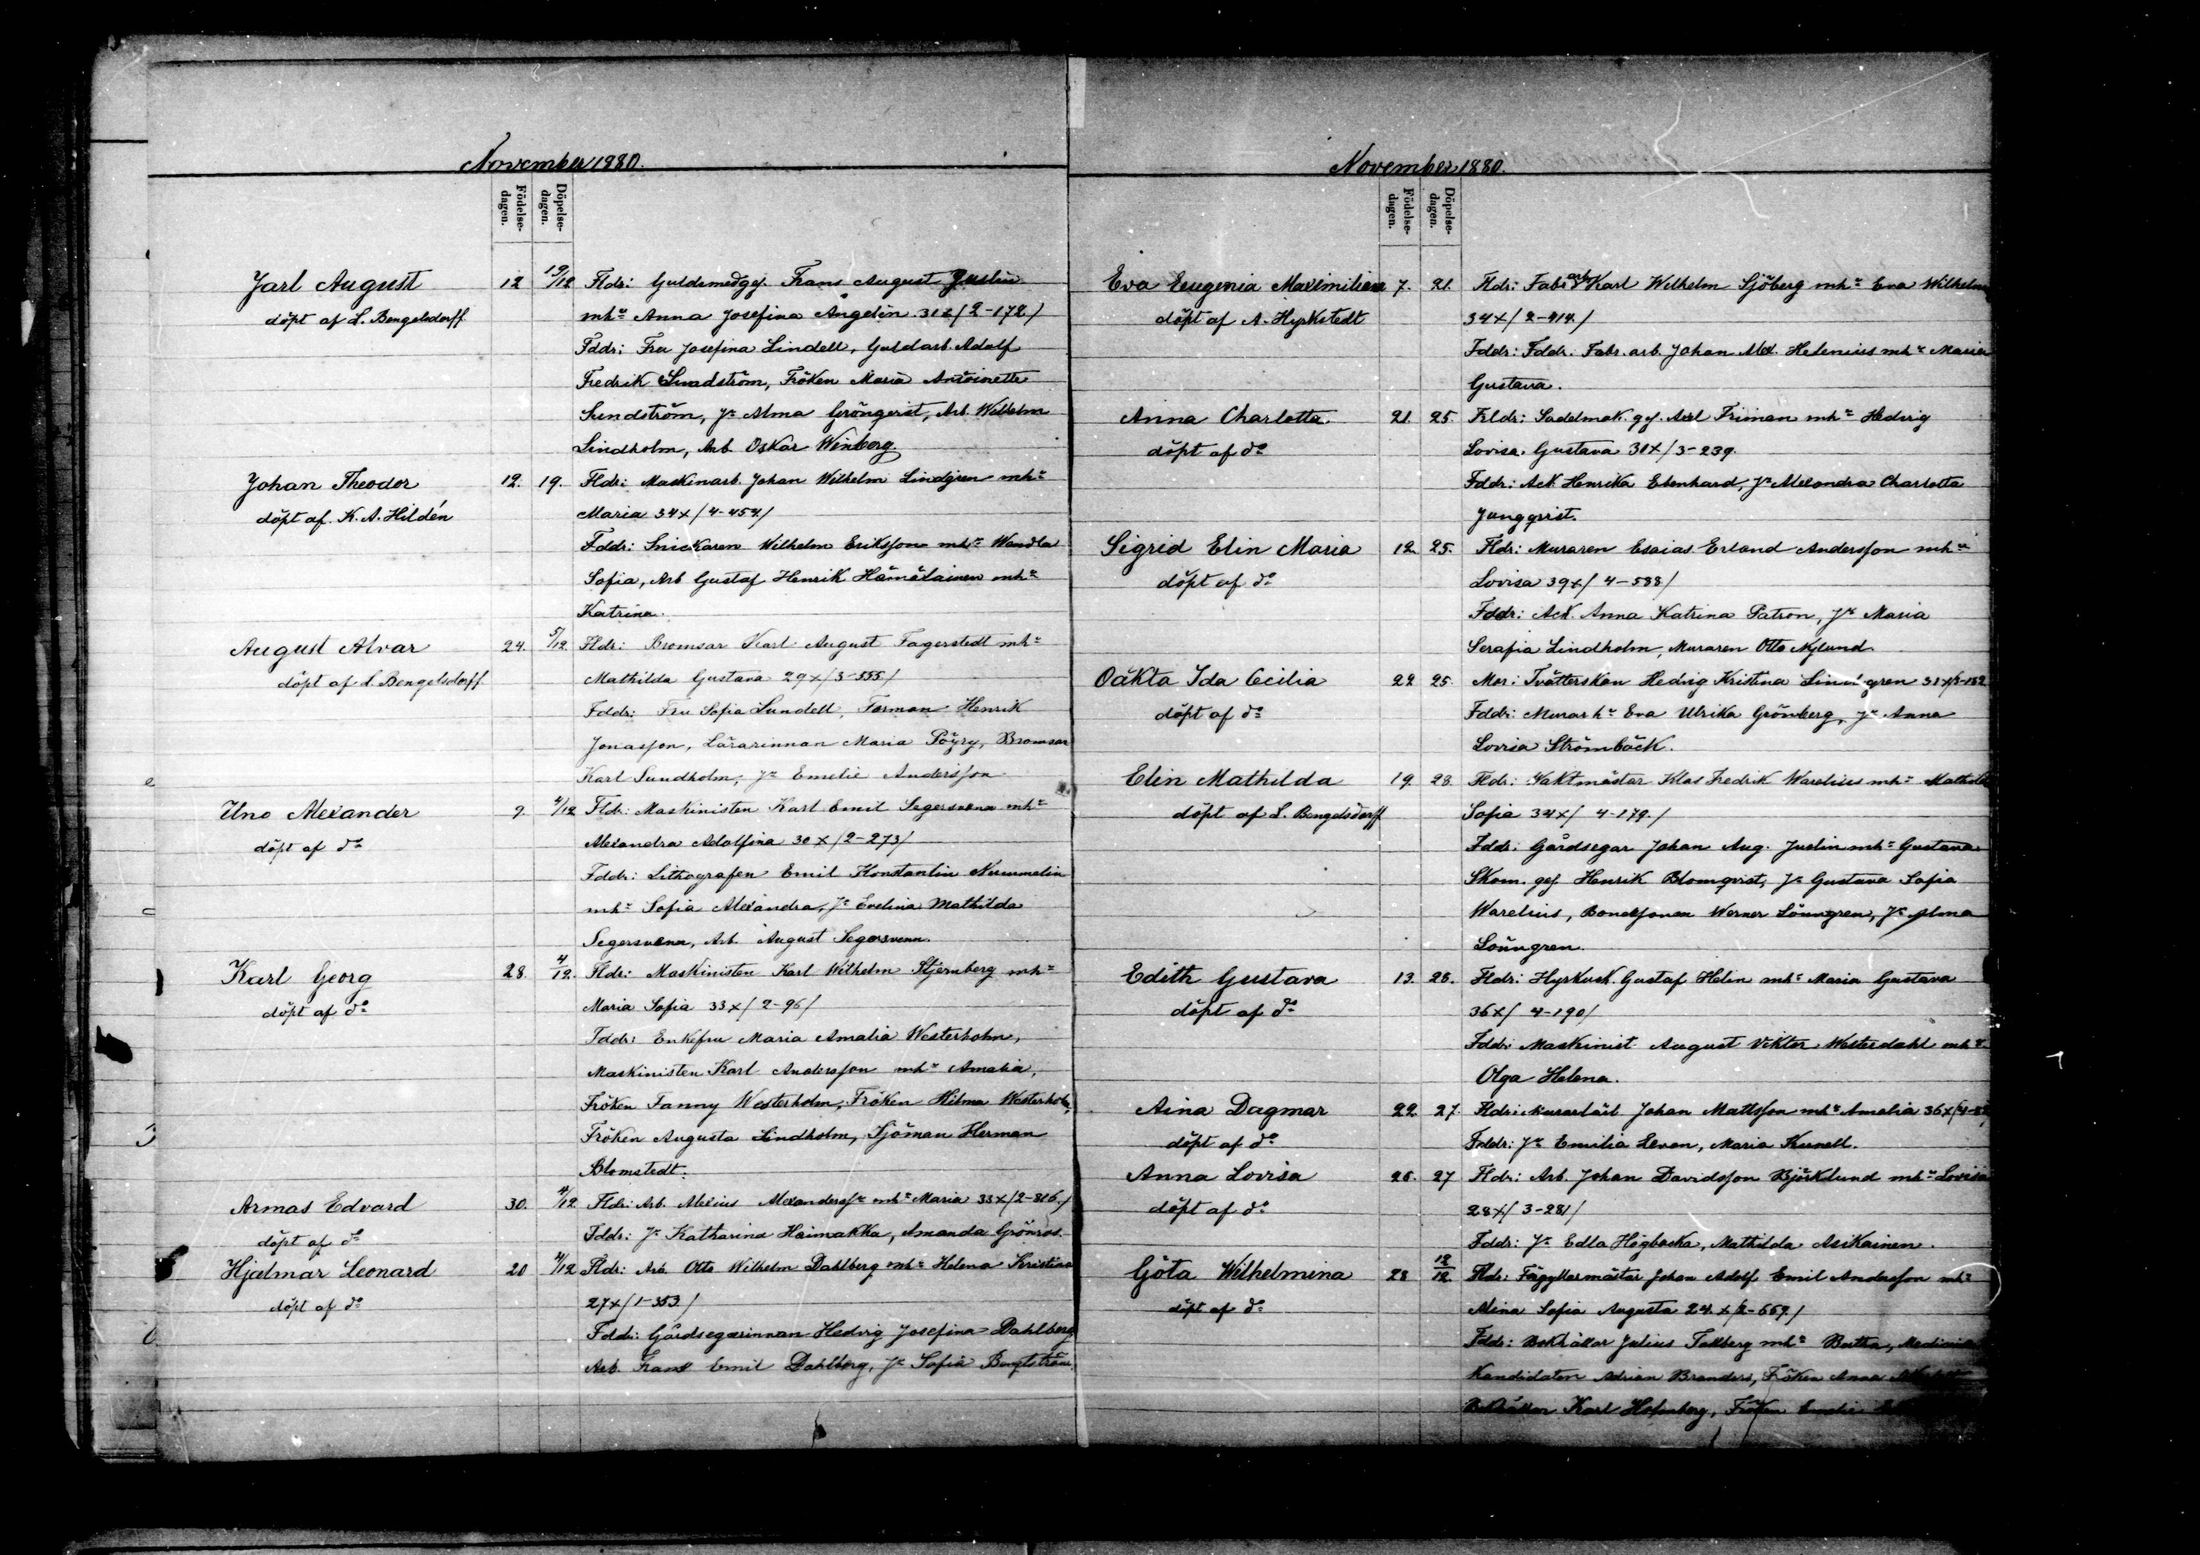 November 1880.
Födelse-
dagen.
Döpelse-
dagen.
Jarl August 12 19/12 Fldr: Guldsmedgs. Frans August Juslin
döpt af L. Bengelsdorff mhu Anna Josefina Ångelin 31 x/2-172/
Fddr: Fru Josefina Lindell, Guldarb. Adolf
Fredrik Sundström, Fröken Maria Antoinette
Sundström, Jn Alma Gröngvist, Arb. Wilhelm
Lindholm, Arb. Oskar Winberg.
Johan Theodor 12. 19. Fldr: Maskinarb. Johan Wilhelm Lindgren mhu
döpt af K. A. Hildén Maria 34x/4-454/
Fddr: Snickaren Wilhelm Eriksson mhu Wendla
Sofia, Arb Gustaf Henrik Hämäläinen mhu
Katrina.
August Alvar 24. 5/12 Fldr: Bromsar Karl August Fagerstedt mhu
döpt af L Bengelsdorff Mathilda Gustava 29x/3-555/
Fddr: Fru Sofia Lundell, Forman Henrik
Jonasson, Lärarinnan Maria Pöyry, Bromsar
Karl Sundholm, Jn Emelie Andersson
Uno Alexander 9. 4/12 Fldr: Maskinisten Karl Emil Segersvena mhu
döpt af do Alexandra Adolfina 30x/2-273/
Fddr: Lithografen Emil Konstantin Nurmmelin
mhu Sofia Alexandra, Jn Evelina Mathilda
Segersvenn, Arb. August Segersvenn.
Karl Georg 28. 4/12. Fldr: Maskinisten Karl Wilhelm Stjernberg mhu
döpt af do Maria Sofia 33x/2-96/
Fddr: Enkefru Maria Amalia Westerholm,
Maskinisten Karl Andersson mhu Amalia,
Fröken Fanny Westerholm, Fröken Hilma Westerholm,
Fröken Augusta Lindholm, Sjöman Herman
Blomstedt.
Armas Edvard 30. 4/12 Fldr: Arb. Alexius Alexanderssn mhu Maria 33x/2-816./
döpt af do Fddr: Jn Katharina Haimakka, Amanda Grönros.
Hjalmar Leonard 20 4/12 Fldr: Arb. Otto Wilhelm Dahlberg mhu Helena Kristina
döpt af do 27x/1-353/
Fddr: Gårdsegarinnan Hedvig Josefina Dahlberg
Arb. Frans Emil Dahlberg, Jn Sofia Bengtström.
November 1880.
Födelse-
dagen.
Döpelse-
dagen.
Eva Eugenia Maximiliana 7. 21. Fldr: Fabr arb Karl Wilhelm Sjöberg mhu Eva Wilhelm
döpt af A. Hyrkstedt 34x/2-914./
Fddr: Fddr. Fabr. arb. Johan Alex. Helenius mhu Maria
Gustava.
Anna Charlotta. 21. 25. Frldr: Sadelmak. gs. Axel Friman mhu Hedvig
döpt af do Lovisa Gustava 31x/3-239.
Fddr: Ack Henrika Ebenhard, Jn Alexandra Charlotta
Jungqvist.
Sigrid Elin Maria 12 25. Fldr: Muraren Esaias Erland Andersson mhu
döpt af do Lovisa 39x/4-588/
Fddr: Ack Anna Katrina Patron, Jn Maria
Serafia Lindholm, Muraren Otto Nylund.
Oäkta Ida Cecilia 22 25. Mor: Tvätterskan Hedvig Kristina Lindgren 31x/3-152
döpt af do Fddr: Murarhu Eva Ulrika Grönberg, Jn Anna
Lovisa Strömbäck.
Elin Mathilda 19. 28. Fldr: Vaktmästar Klas Fredrik Warelius mhu Mathilda
döpt af L. Bengelsdorff Sofia 34x/4-179./
Fddr. Gårdsegar Johan Aug. Juslin mhu Gustava
Skom. gs. Henrik Blomqvist, Jn Gustava Sofia
Warelius, Bondesonen Werner Lönngren, Jn Alma
Lönngren.
Edith Gustava 13. 26. Fldr: Hyrkusk. Gustaf Helin mhu Maria Gustava
döpt af do 36x/4-190/
Fddr: Maskinist August Viktor Westerdahl mhu
Olga Helena.
Aina Dagmar 22. 27. Fldr: Murarlärl Johan Mattsson mhu Amalia 36x/
döpt af do Fddr: Jn Emilia Leven, Maria Kunell.
Anna Lovisa 26. 27 Fldr: Arb. Johan Davidsson Björklund mhu Lovisa
döpt af do 28x/3-281/
Fddr: Jn Edla Högbacka, Mathilda Asikainen.
Göta Wilhelmina 28 12/12 Fldr: Förgyllarmästar Johan Adolf Emil Andersson mhu
döpt af do Alina Sofia Augusta 24. x/2-659./
Fddr: Bokhållar Julius Tallberg mhu Bertha, Medicine
Kandidaten Adrian Branders, Fröken Anna
Bokhållar Karl Holmberg, Fröken Emelie